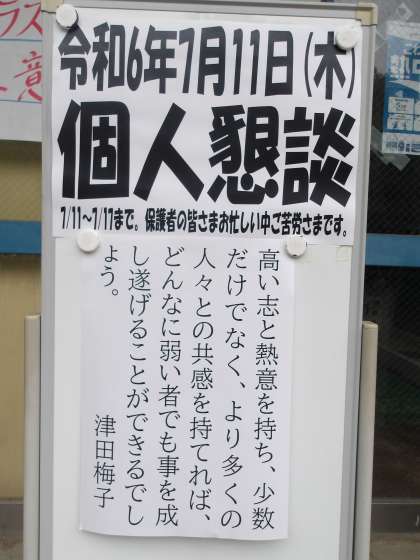 令和6年7月11日(木)
個人懇談
7/11~7/17まで。保護者の皆さまお忙しい中ご苦労さまです。
高い志と熱意を持ち、少数
だけでなく、より多くの
人々との共感を持てれば、
どんなに弱い者でも事を成
し遂げることができるでし
ょう。
津田梅子